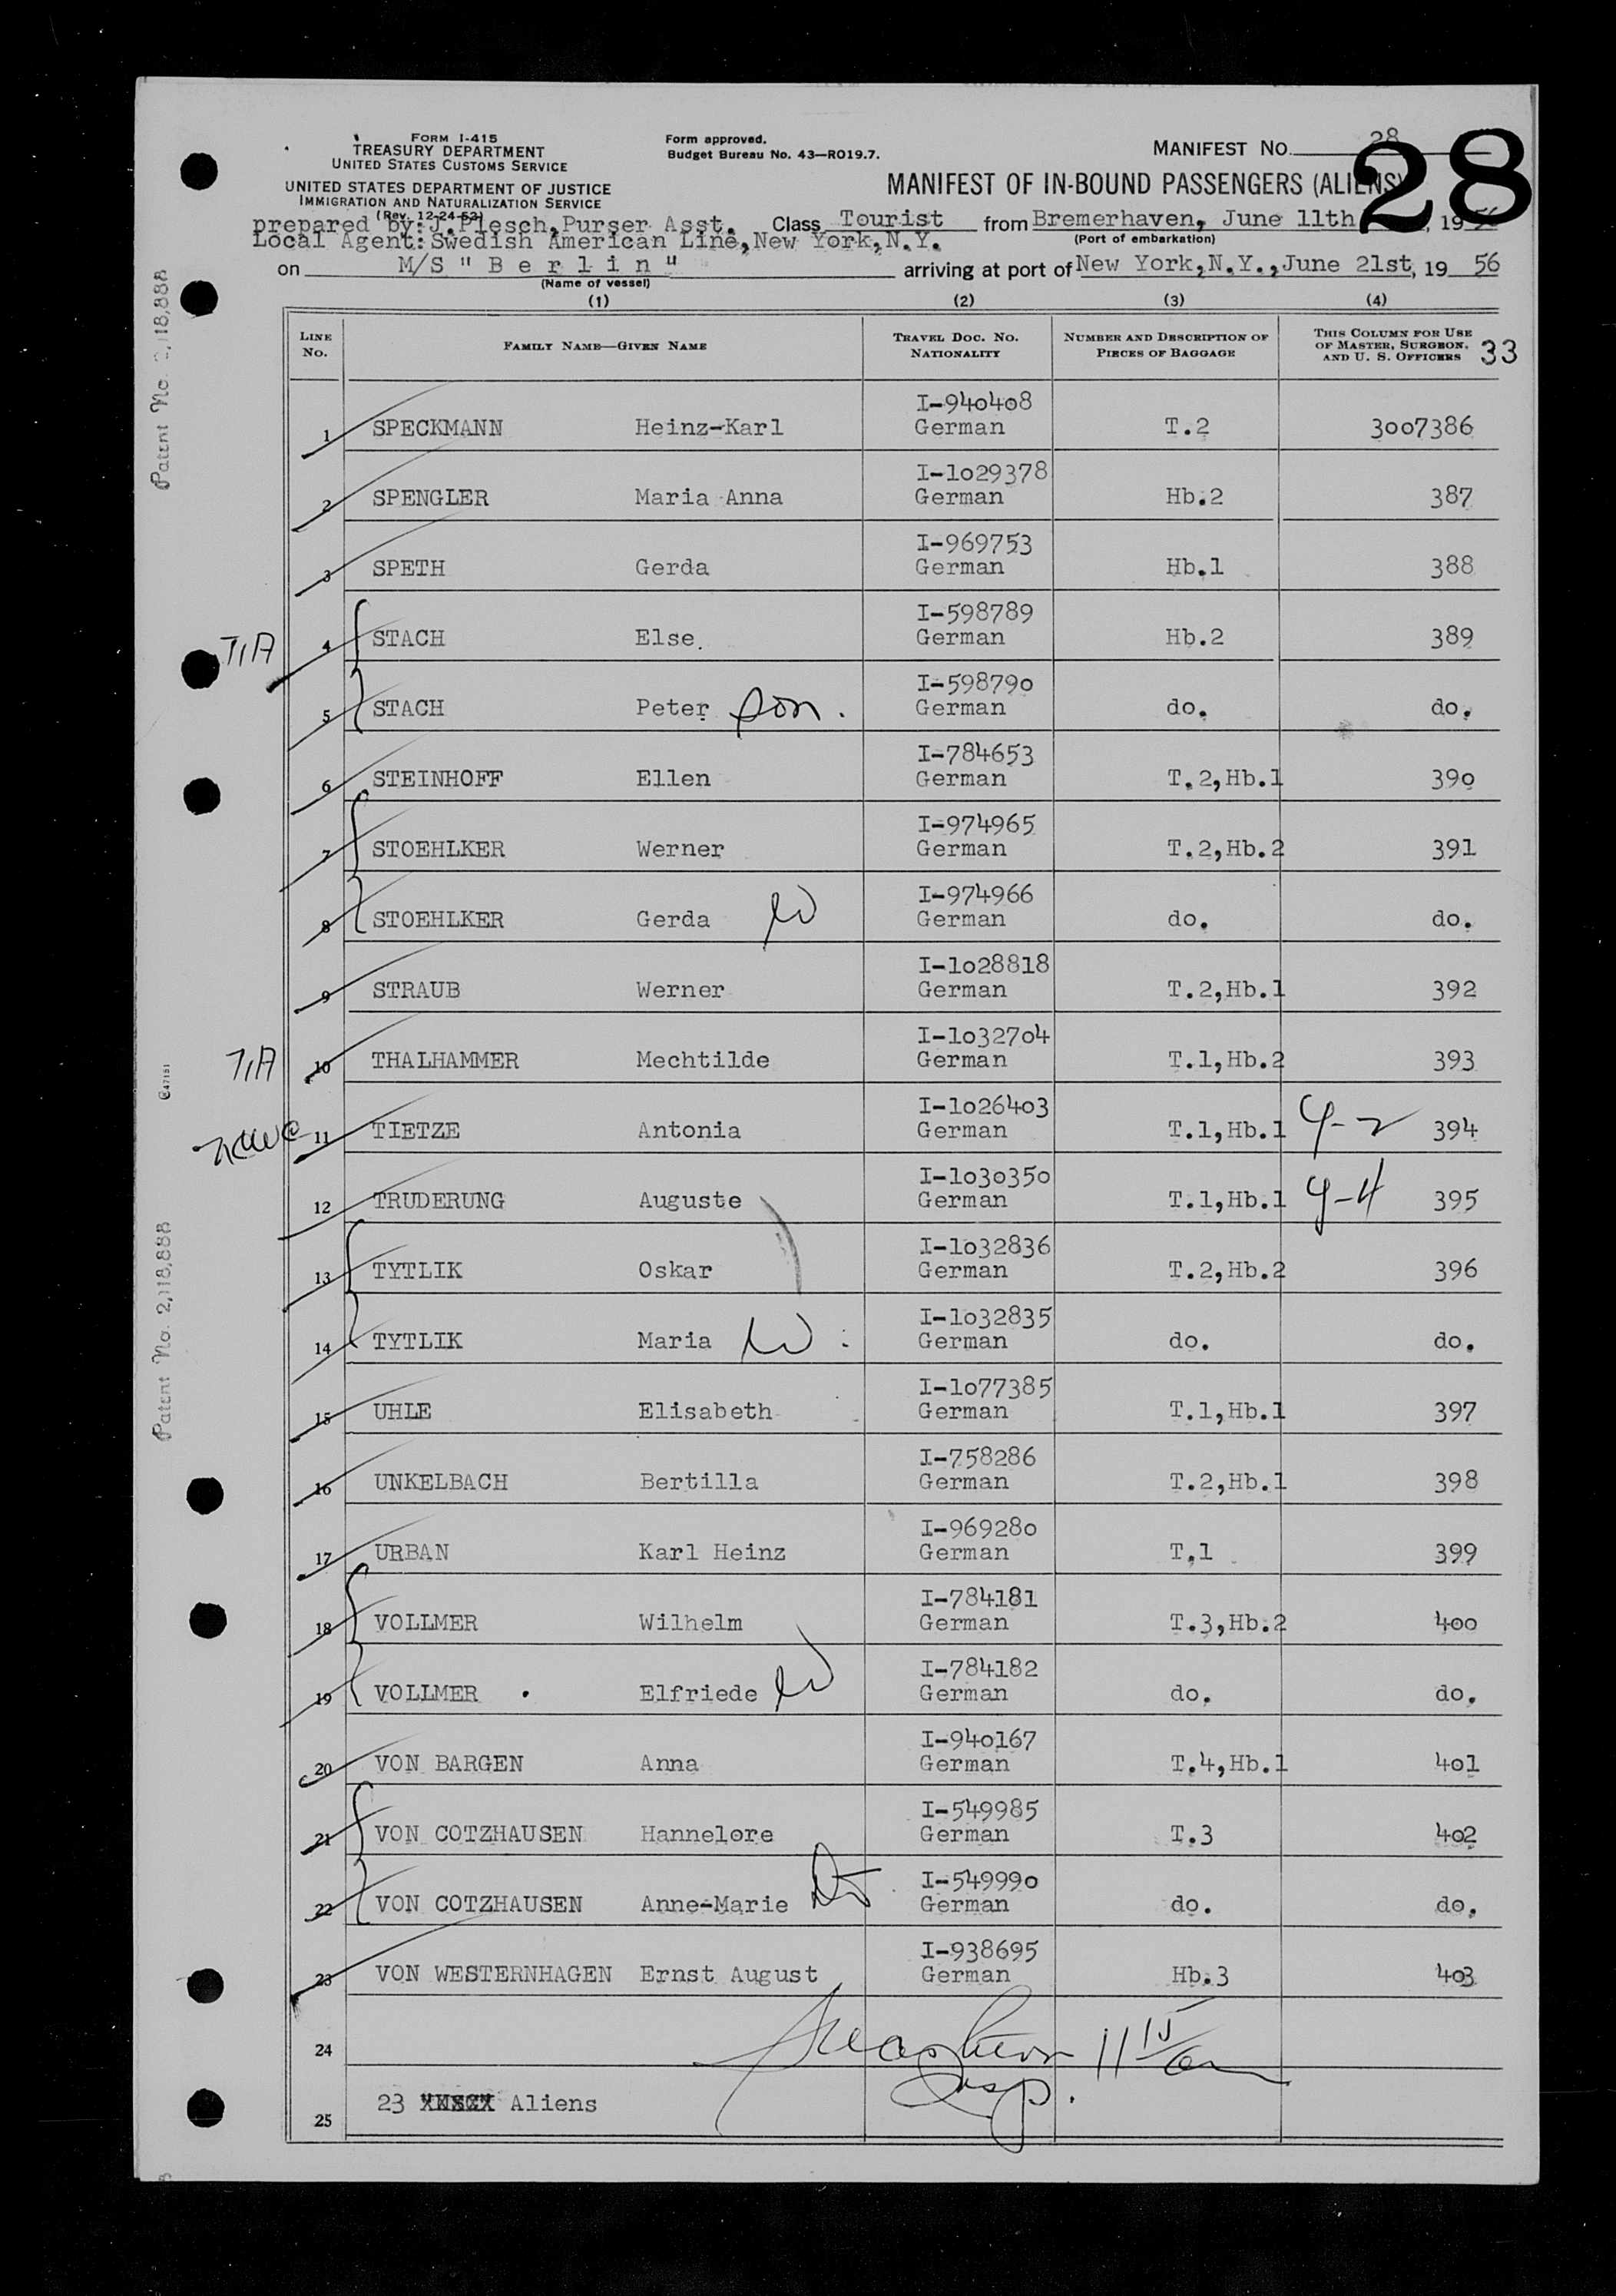 FORM I-415
TREASURY DEPARTMENT
UNITED STATES CUSTOMS SERVICE
UNITED STATES DEPARTMENT OF JUSTICE
IMMIGRATION AND NATURALIZATION SERVICE
(Rev. 12-24-53)
Form approved.
Budget Bureau No. 43—RO19.7.
MANIFEST NO. 28
28
MANIFEST OF IN-BOUND PASSENGERS (ALIENS)
prepared by: J.Plesch,Purser Asst. Class Tourist from Bremerhaven, June 11th, 1956
(Port of embarkation)
Local Agent: Swedish American Line,New York,N.Y.
on M/S " B e r l i n " arriving at port of New York,N.Y.,June 21st, 19 56
(Name of vessel)
(1) (2) (3) (4)
LINE NO. FAMILY NAME—GIVEN NAME TRAVEL DOC. NO. NATIONALITY NUMBER AND DESCRIPTION OF PIECES OF BAGGAGE THIS COLUMN FOR USE OF MASTER, SURGEON, AND U. S. OFFICERS 33
I-940408
1 SPECKMANN Heinz-Karl German T.2 3007386
I-1029378
2 SPENGLER Maria Anna German Hb.2 387
I-969753
3 SPETH Gerda German Hb.1 388
I-598789
T1A 4 STACH Else. German Hb.2 389
I-598790
5 STACH Peter son. German do. do.
I-784653
6 STEINHOFF Ellen German T.2,Hb.1 390
I-974965
7 STOEHLKER Werner German T.2,Hb.2 391
I-974966
8 STOEHLKER Gerda W German do. do.
I-1028818
9 STRAUB Werner German T.2,Hb.1 392
I-1032704
T1A 10 THALHAMMER Mechtilde German T.1,Hb.2 393
I-1026403
11 TIETZE Antonia German T.1,Hb.1 4-2 394
I-1030350
12 TRUDERUNG Auguste German T.1,Hb.1 4-4 395
I-1032836
13 TYTLIK Oskar German T.2,Hb.2 396
I-1032835
14 TYTLIK Maria W German do. do.
I-1077385
15 UHLE Elisabeth German T.1,Hb.1 397
I-758286
16 UNKELBACH Bertilla German T.2,Hb.1 398
I-969280
17 URBAN Karl Heinz German T.1 399
I-784181
18 VOLLMER Wilhelm German T.3,Hb.2 400
I-784182
19 VOLLMER Elfriede W German do. do.
I-940167
20 VON BARGEN Anna German T.4,Hb.1 401
I-549985
21 VON COTZHAUSEN Hannelore German T.3 402
I-549990
22 VON COTZHAUSEN Anne-Marie German do. do.
I-938695
23 VON WESTERNHAGEN Ernst August German Hb.3 403
24
Insp.
25 23 Aliens
Patent No. 2,118,888
C47151
Patent No. 2,118,888